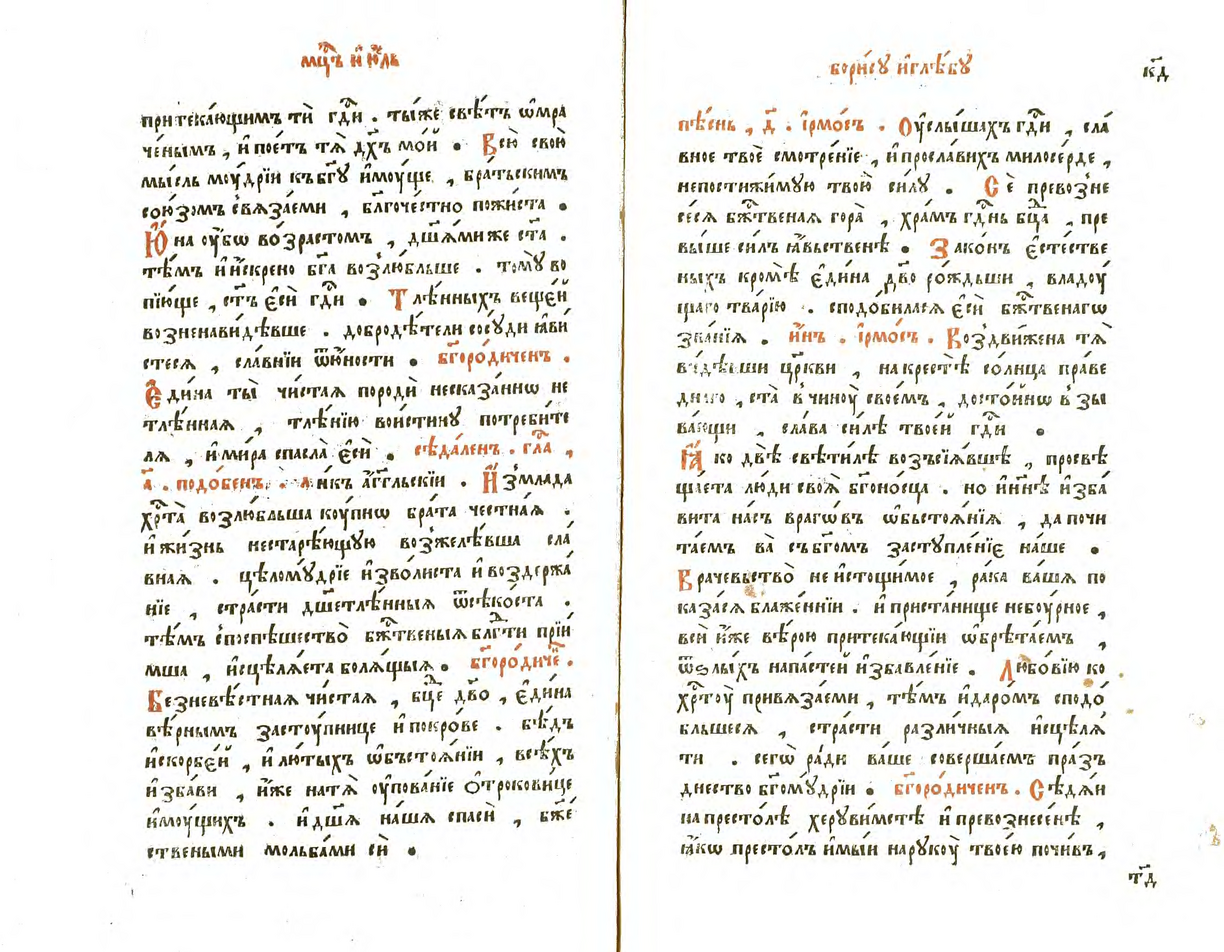 мц҃ъ и҆ ю҆́ль
притека́ющимъ тѝ гд҃и . ты́же свѣ́тъ ѡ҆мра
че́нымъ , и҆ пое́тъ тѧ̀ дх҃ъ мо́й . Всю̀ свою̀
мы́сль моу́дрїи къ бг҃ꙋ и҆моу́ще , бра́тьскимъ
сою́зомъ свѧ́заеми , бл҃гоче́стно пожи́ста .
Ю҆́на оу҆́бѡ во́зрастомъ , дш҃а́ми же ста̀ .
тѣ́мъ и҆ и҆́скрено бг҃а возлюбльше . томꙋ̀ во
пїю́ще , ст҃ъ є҆сѝ гд҃и . Тлѣ́нныхъ веще́й
возненави́дѣвше . добродѣ́тели сосꙋ́ди ꙗ҆ви́
стесѧ , сла́внїи ѿ ю҆́ности . бг҃оро́диченъ .
Є҆ди́на ты̀ чи́стаѧ породѝ несказа́ннѡ не
тлѣ́ннаѧ , тлѣ́нїю вои́стинꙋ потреби́те
лѧ , и҆ ми́ра спасла̀ є҆сѝ . сѣда́ленъ . гла҃ ,
а҃ . подо́бенъ . ли́къ а҆́гг҃льскїи . И҆ змла́да
хр҃та̀ возлюбльша коу́пнѡ бра́та че́стнаѧ .
и҆ жи́знь нестарѣ́ющꙋю возжелѣ́вша сла́
внаѧ . цѣломꙋ́дрїе и҆зво́листа и҆ воздержа́
нїе , стра́сти дш҃етлѣ́нныѧ ѿсѣко́ста .
тѣ́мъ споспѣ́шество бж҃твеныѧ блг҃ти прїи́
мша , и҆сцѣлѧ́ета болѧ́щыѧ . бг҃оро́диче .
Безневѣ́стнаѧ чи́стаѧ , бц҃е дв҃о , є҆ди́на
вѣ́рнымъ застоу́пнице и҆ покро́ве . бѣ́дъ
и҆ скорбе́й , и҆ лю́тыхъ ѡ҆бъстоѧ́нїи , всѣ́хъ
и҆зба́ви , и҆̀же на тѧ̀ оу҆пова́нїе ѻ҆трокови́це
и҆моу́щихъ . и҆ дш҃а̀ на́шѧ спасѝ , бж҃е
ствеными мольба́ми сѝ .
бори́сꙋ и҆ глѣ́бꙋ
кд҃
пѣ́снь , д҃ . і҆рмо́съ . Оу҆слы́шахъ гд҃и , сла́
вное твоѐ смотре́нїе , и҆ просла́вихъ милосе́рде ,
непостижи́мꙋю твою̀ си́лꙋ . Сѐ превозне
се́сѧ бж҃твенаѧ гора̀ , хра́мъ гд҃нь бц҃а , пре
вы́ше си́лъ ꙗ҆́вьственѣ . Зако́нъ є҆сте́стве
ныхъ кромѣ̀ є҆ди́на дв҃о ро́ждьши , владоу́
щаго тва́рїю . сподо́биласѧ є҆сѝ бж҃твенагѡ
зва́нїѧ . и҆́нъ . і҆рмо́съ . Воздви́жена тѧ̀
ви́дѣвши цр҃кви , на крестѣ̀ со́лнца пра́ве
днаго , ста̀ в чиноу̀ свое́мъ , досто́йнѡ взы
ва́ющи , сла́ва си́лѣ твое́й гд҃и .
Ꙗ҆́ко двѣ̀ свѣти́лѣ возъсїѧ́вшѣ , просвѣ
ща́ета лю́ди своѧ̀ бг҃оно́сца . но и҆ нн҃ѣ и҆зба́
вита на́съ враго́въ ѡ҆бьстоѧ́нїѧ , да почи
та́емъ ва̀ съ бг҃омъ застꙋпле́нїе на́ше .
Врачевьство̀ неи҆стощи́мое , ра́ка ва́шѧ по
каза́сѧ блаже́ннїи . и҆ приста́нище небоу́рное ,
всѝ и҆́же вѣ́рою притека́ющїи ѡ҆брѣта́емъ ,
ѿ ѕлы́хъ напа́стей и҆збавле́нїе . Любо́вїю ко
хр҃тоу̀ привѧ́заеми , тѣ́мъ и҆ да́ро́мъ сподо́
бльшесѧ , стра́сти разли́чныѧ и҆сцѣлѧ́
ти . сегѡ̀ ра́ди ва́ше соверша́емъ пра́зъ
днество бг҃омꙋ́дрїи . бг҃оро́диченъ . Сѣдѧ́и
на престо́лѣ херꙋви́мстѣ и҆ превознесе́нѣ ,
ꙗ҆́кѡ престо́лъ и҆мы́и на рꙋкоу̀ твое́ю почи́въ ,
тд҃